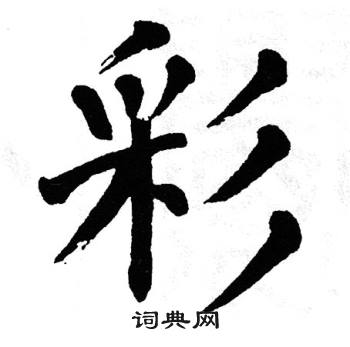 彩
词典网